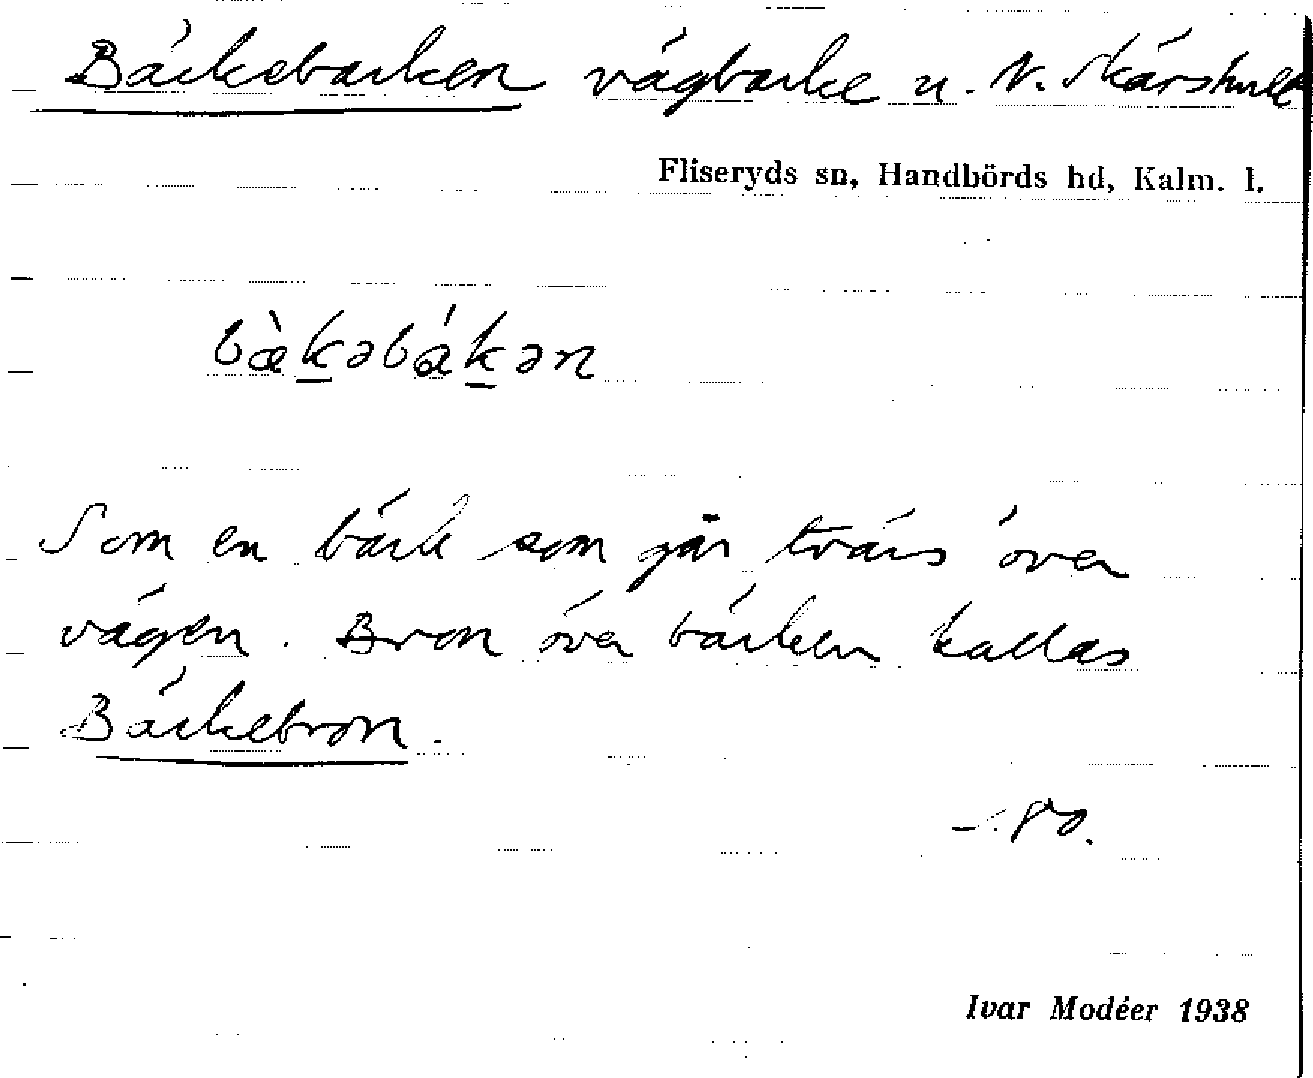 Bäckebacken vägbacke u. N. Skärshult
Fliseryds sn, Handbörds hd, Kalm. l.
bæ̀kəbákən
Som en bäck som går tvärs över
vägen. Bron över bäcken kallas
Bäckebron.
Ivar Modéer 1938